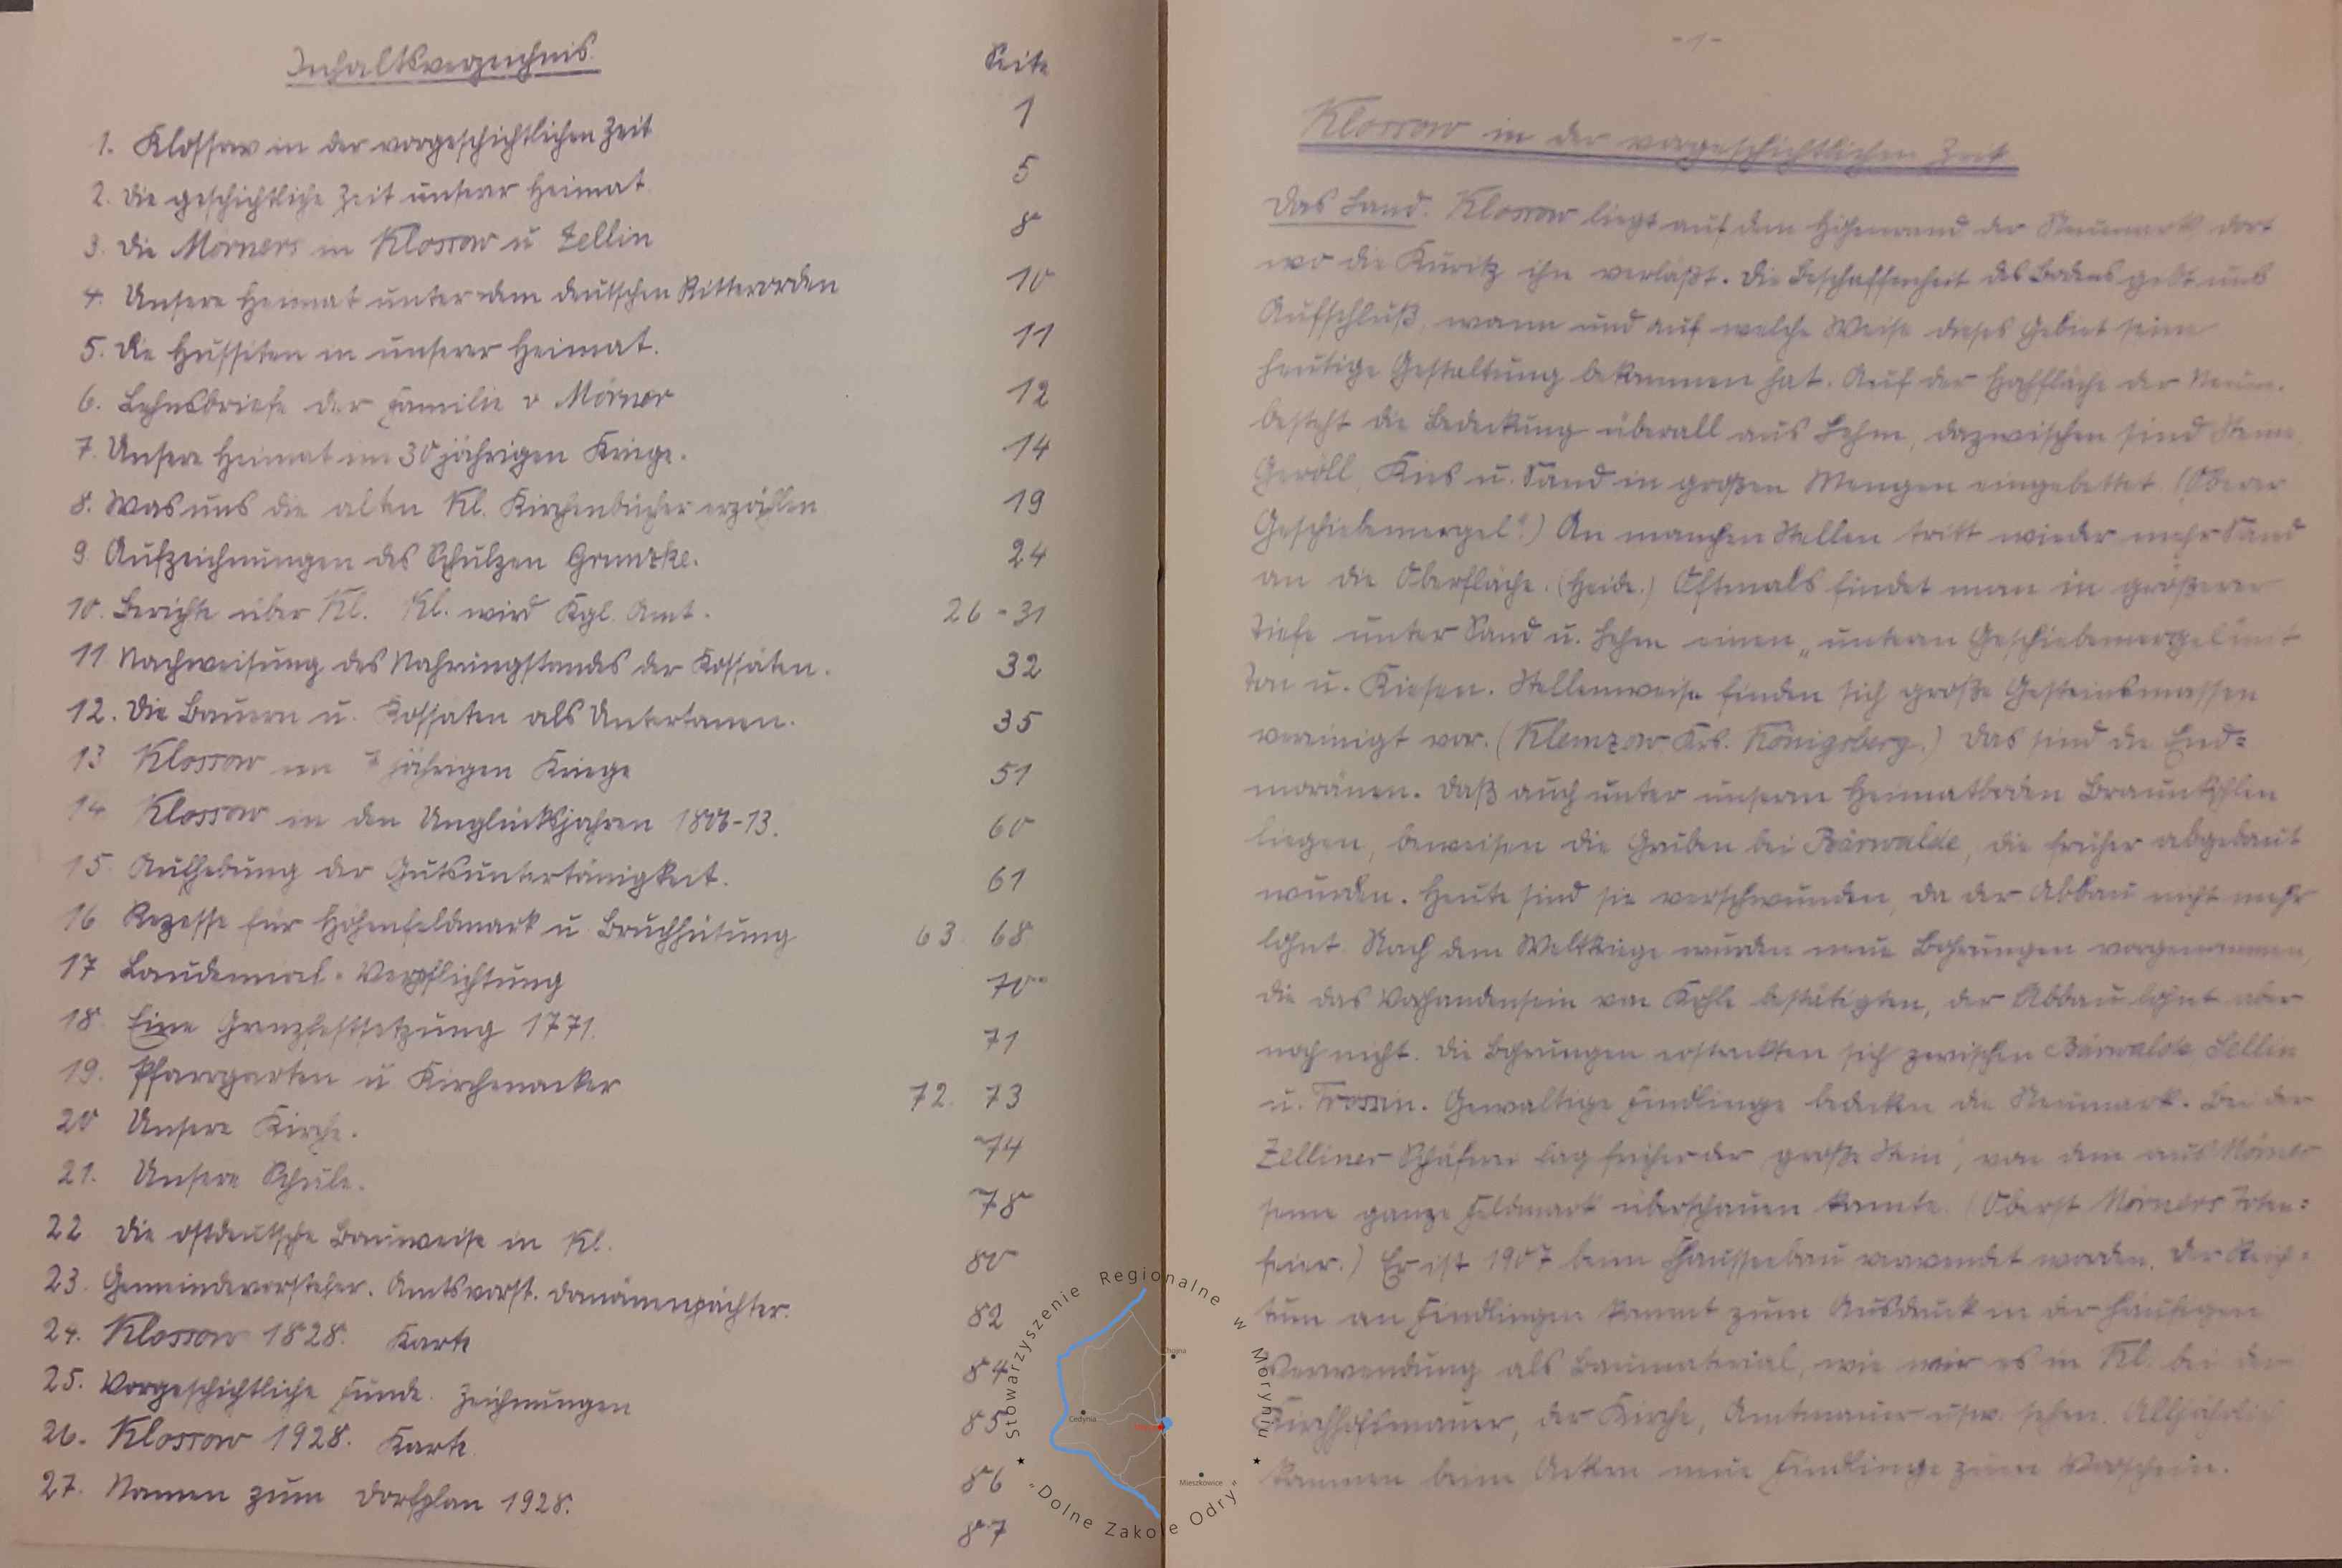 Inhaltsverzeichnis.
Seite
1. Klossow in der vorgeschichtlichen Zeit 1
2. Die geschichtliche Zeit unserer Heimat 5
3. Die Mörners in Klossow u Zellin 8
4. Unsere Heimat unter dem deutschen Ritterorden 10
5. Die Hussiten in unserer Heimat. 11
6. Lehnsbriefe der Familie v Mörner 12
7. Unsere Heimat im 30 jährigen Kriege. 14
8. Was uns die alten Kl. Kirchenbücher erzählen 19
9 Aufzeichnungen des Schulzen 24
10. Berichte über Kl. Kl. wird Kgl. Amt. 26-31
11 Nachweisung des Nahrungstandes der Kossäten. 32
12. Die Bauern u. Kossäten als Untertanen. 35
13 Klossow im 7 jährigen Kriege 51
14 Klossow in den Unglücksjahren 1806-13. 60
15 Aufhebung der Gutsuntertänigkeit. 61
16 Rezesse für Höhenfeldmark u Bruchhütung 63. 68
17 Laudemial-Verpflichtung 70
18. Eine Grenzfestsetzung 1771. 71
19. Pfarrgarten u Kirchenacker 72. 73
20 Unsere Kirche. 74
21. Unsere Schule. 78
22 Die ostdeutsche Bauweise in Kl. 80
23. Gemeindevorsteher. Amtsvorst. Domänenpächter. 82
24. Klossow 1828. Karte 84
25. Vorgeschichtliche Funde. Zeichnungen 85
26. Klossow 1928. Karte 86
27. Namen zum Dorfplan 1928. 87
-1-
Klossow in der vorgeschichtlichen Zeit
Das Land. Klossow liegt auf dem Höhenrand der Neumark dort
wo die Kuritz ihn verläßt. Die Beschaffenheit des Bodens gibt uns
Aufschluß, wann und auf welche Weise dieses Gebiet seine
heutige Gestaltung bekommen hat. Auf der Hochfläche der Neum.
besteht die Bedeckung überall aus Lehm, dazwischen sind Steine,
Geröll, Kies u. Sand in großen Mengen eingebettet (Oberer
Geschiebemergel!) An manchen Stellen tritt wieder mehr Sand
an die Oberfläche. (Heide.) Oftmals findet man in größerer
Tiefe unter Sand u. Lehm einen „unteren Geschiebemergel mit
Ton u. Kiesen. Stellenweise finden sich große Gesteinsmassen
vereinigt vor. (Klemzow Krs. Königsberg.) Das sind die End=
moränen. Daß auch unter unserm Heimatboden Braunkohlen
liegen, beweisen die Gruben bei Bärwalde, die früher abgebaut
wurden. Heute sind sie verschwunden, da der Abbau nicht mehr
lohnt. Nach dem Weltkriege wurden neue Bohrungen vorgenommen,
die das Vorhandensein von Kohle bestätigten, der Abbau lohnt aber
noch nicht. Die Bohrungen erstreckten sich zwischen Bärwalde Sellin
u. Trossin. Gewaltige Findlinge bedecken die Neumark. Bei der
Zelliner Schäferei lag früher der große Stein, von dem aus Mörner
seine ganze Feldmark überschauen konnte. (Oberst Mörners Toten=
feier.) Er ist 1907 beim Chausseebau verwendet worden. Der Reich=
tum an Findlingen kommt zum Ausdruck in der häufigen
Verwendung als Baumaterial, wie wir es in Kl. bei der
Kirchhofsmauer, der Kirche, Amtmauer usw. sehen. Alljährlich
kommen beim Ackern neue Findlinge zum Vorschein.
Stowarzyszenie Regionalne w Moryniu
"Dolne Zakole Odry"
Chojna
Cedynia
Mieszkowice